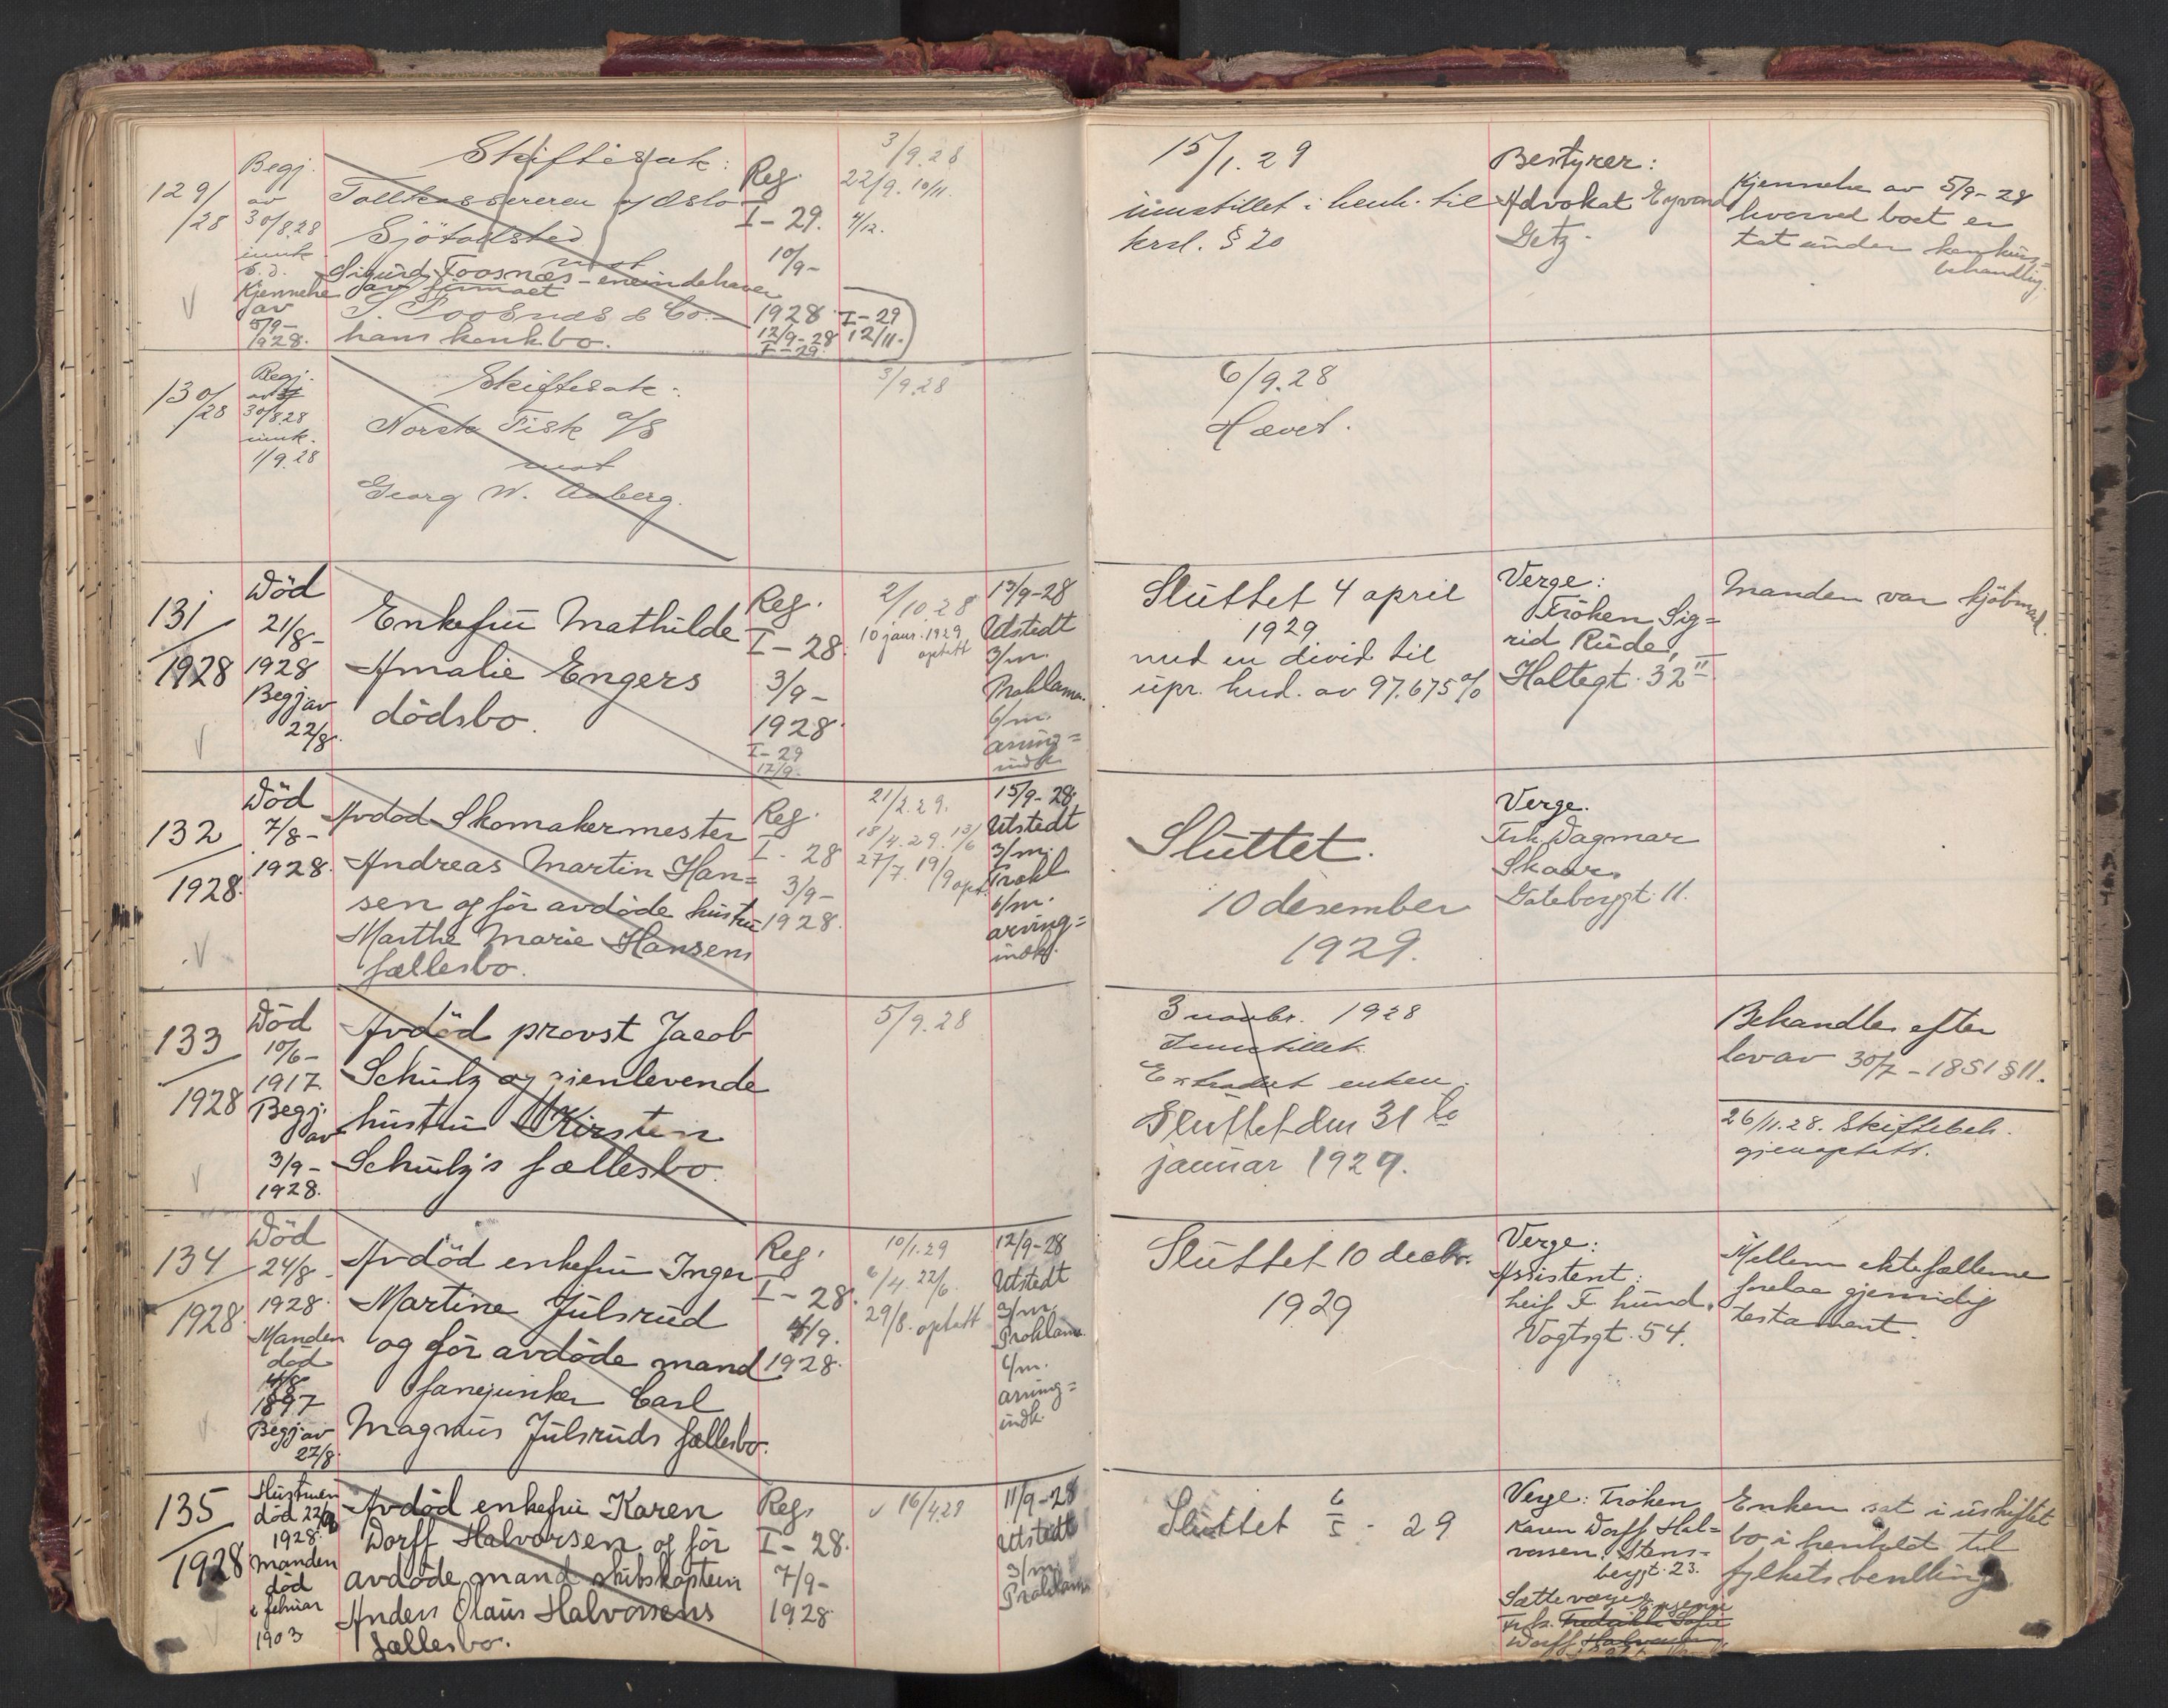 129/
/28
Begj.
av
30/8.28
innk
s.d.
Kjennelse
av
5/9-
1928.
Skiftesak:
Tollkassereren og Oslo
Sjötollsted
mot
Sigurd Foosnæs - eneindehaver
av firmaet
S. Foosnæs & Co. -
hans konk.bo.
Reg.
I-29.
10/9-
1928
12/9-28
I-29
3/9.28
22/9. 10/11.
4/12.
I-29
12/11.
15/1.29
innstillet i henh. til
krsl. § 20
Bestyrer:
Advokat Eyvind
Getz.
Kjennelse av 5/9-28
hvorved boet er
tat under konkurs=
behandling.
130/
/28
Begj.
av
30/8.28
innk.
1/9.28
Skiftesak:
Norsk Fisk a/s
mot
Georg W. Aaberg.
3/9.28
6/9.28
Hævet.
131
1928
Död
21/8-
1928
Begj av
22/8.
Enkefru Mathilde
Amalie Engers
dödsbo.
Reg.
I-28.
3/9-
1928.
I-29
12/9.
2/10 28
10 janr. 1929
optatt
13/9-28
Utstedt
3/m.
Proklama.
6/m.
arving=
indk.
Sluttet 4 april
1929
med en divid til
upr. kred. av 97.675%
Verge:
Fröken Sig=
rid Rude,
Holtegt. 32 II
Manden var kjöbmd.
132
1928.
Död
7/8-
1928.
Avdöd Skomakermester
Andreas Martin Han=
sen og før avdöde hustru
Marthe Marie Hansens
fællesbo.
Reg.
I-28
3/9-
1928.
21/2.29.
18/4.29. 13/6
27/7. 19/9 opt.
15/9-28
Utstedt
3/m.
Prokl
6/m.
arving=
indk.
Sluttet.
10 desember
1929.
Verge.
Frk. Dagmar
Skaar,
Göteborggt. 11.
133
1928
Död
10/6-
1917.
Begj.
av
3/9-
1928.
Avdöd provst Jacob
Schulz og gjenlevende
hustru Kirsten
Schulz's fællesbo.
5/9.28
3 novbr. 1928
Innstillet.
Extradert enken.
Sluttet den 31 te
januar 1929.
Behandles efter
lov av 30/7-1851 § 11.
26/11.28. Skiftebeh.
gjenoptatt.
134
1928.
Död
24/8-
1928.
Manden
död
4/8
1897
Begj av
27/8.
Avdöd enkefru Inger
Martine Julsrud
og før avdöde mand
fanejunker Carl
Magnus Julsruds fællesbo.
Reg.
I-28.
4/9.
1928.
10/1.29
6/4. 22/6.
29/8. optatt
12/9-28
Utstedt
3/m.
Proklama.
6/m.
arving=
indk.
Sluttet 10 decbr.
1929
Verge:
Assistent:
Leif F. Lund.
Vogtsgt. 54.
Mellem ektefællerne
forelaa gjensidig
testament.
135
1928
Hustruen
död 22/8
1928.
Manden
död
i februar
1903
Avdöd enkefru Karen
Dorff Halvorsen og før
avdöde mand skibskaptein
Anders Olaus Halvorsens
fællesbo.
Reg.
I-28.
7/9-
1928
16/4.29
11/9-28
Utstedt
3/m.
Proklama
Sluttet 6/5 - 29
Verge: Fröken
Karen Dorff Hal=
vorsen. Stens=
berggt. 23.
Sætteverge
Frk. Fredrikke Sofie
Dorff Halvorsen
Enken sat i uskiftet
bo i henhold til
fylkets bevilling